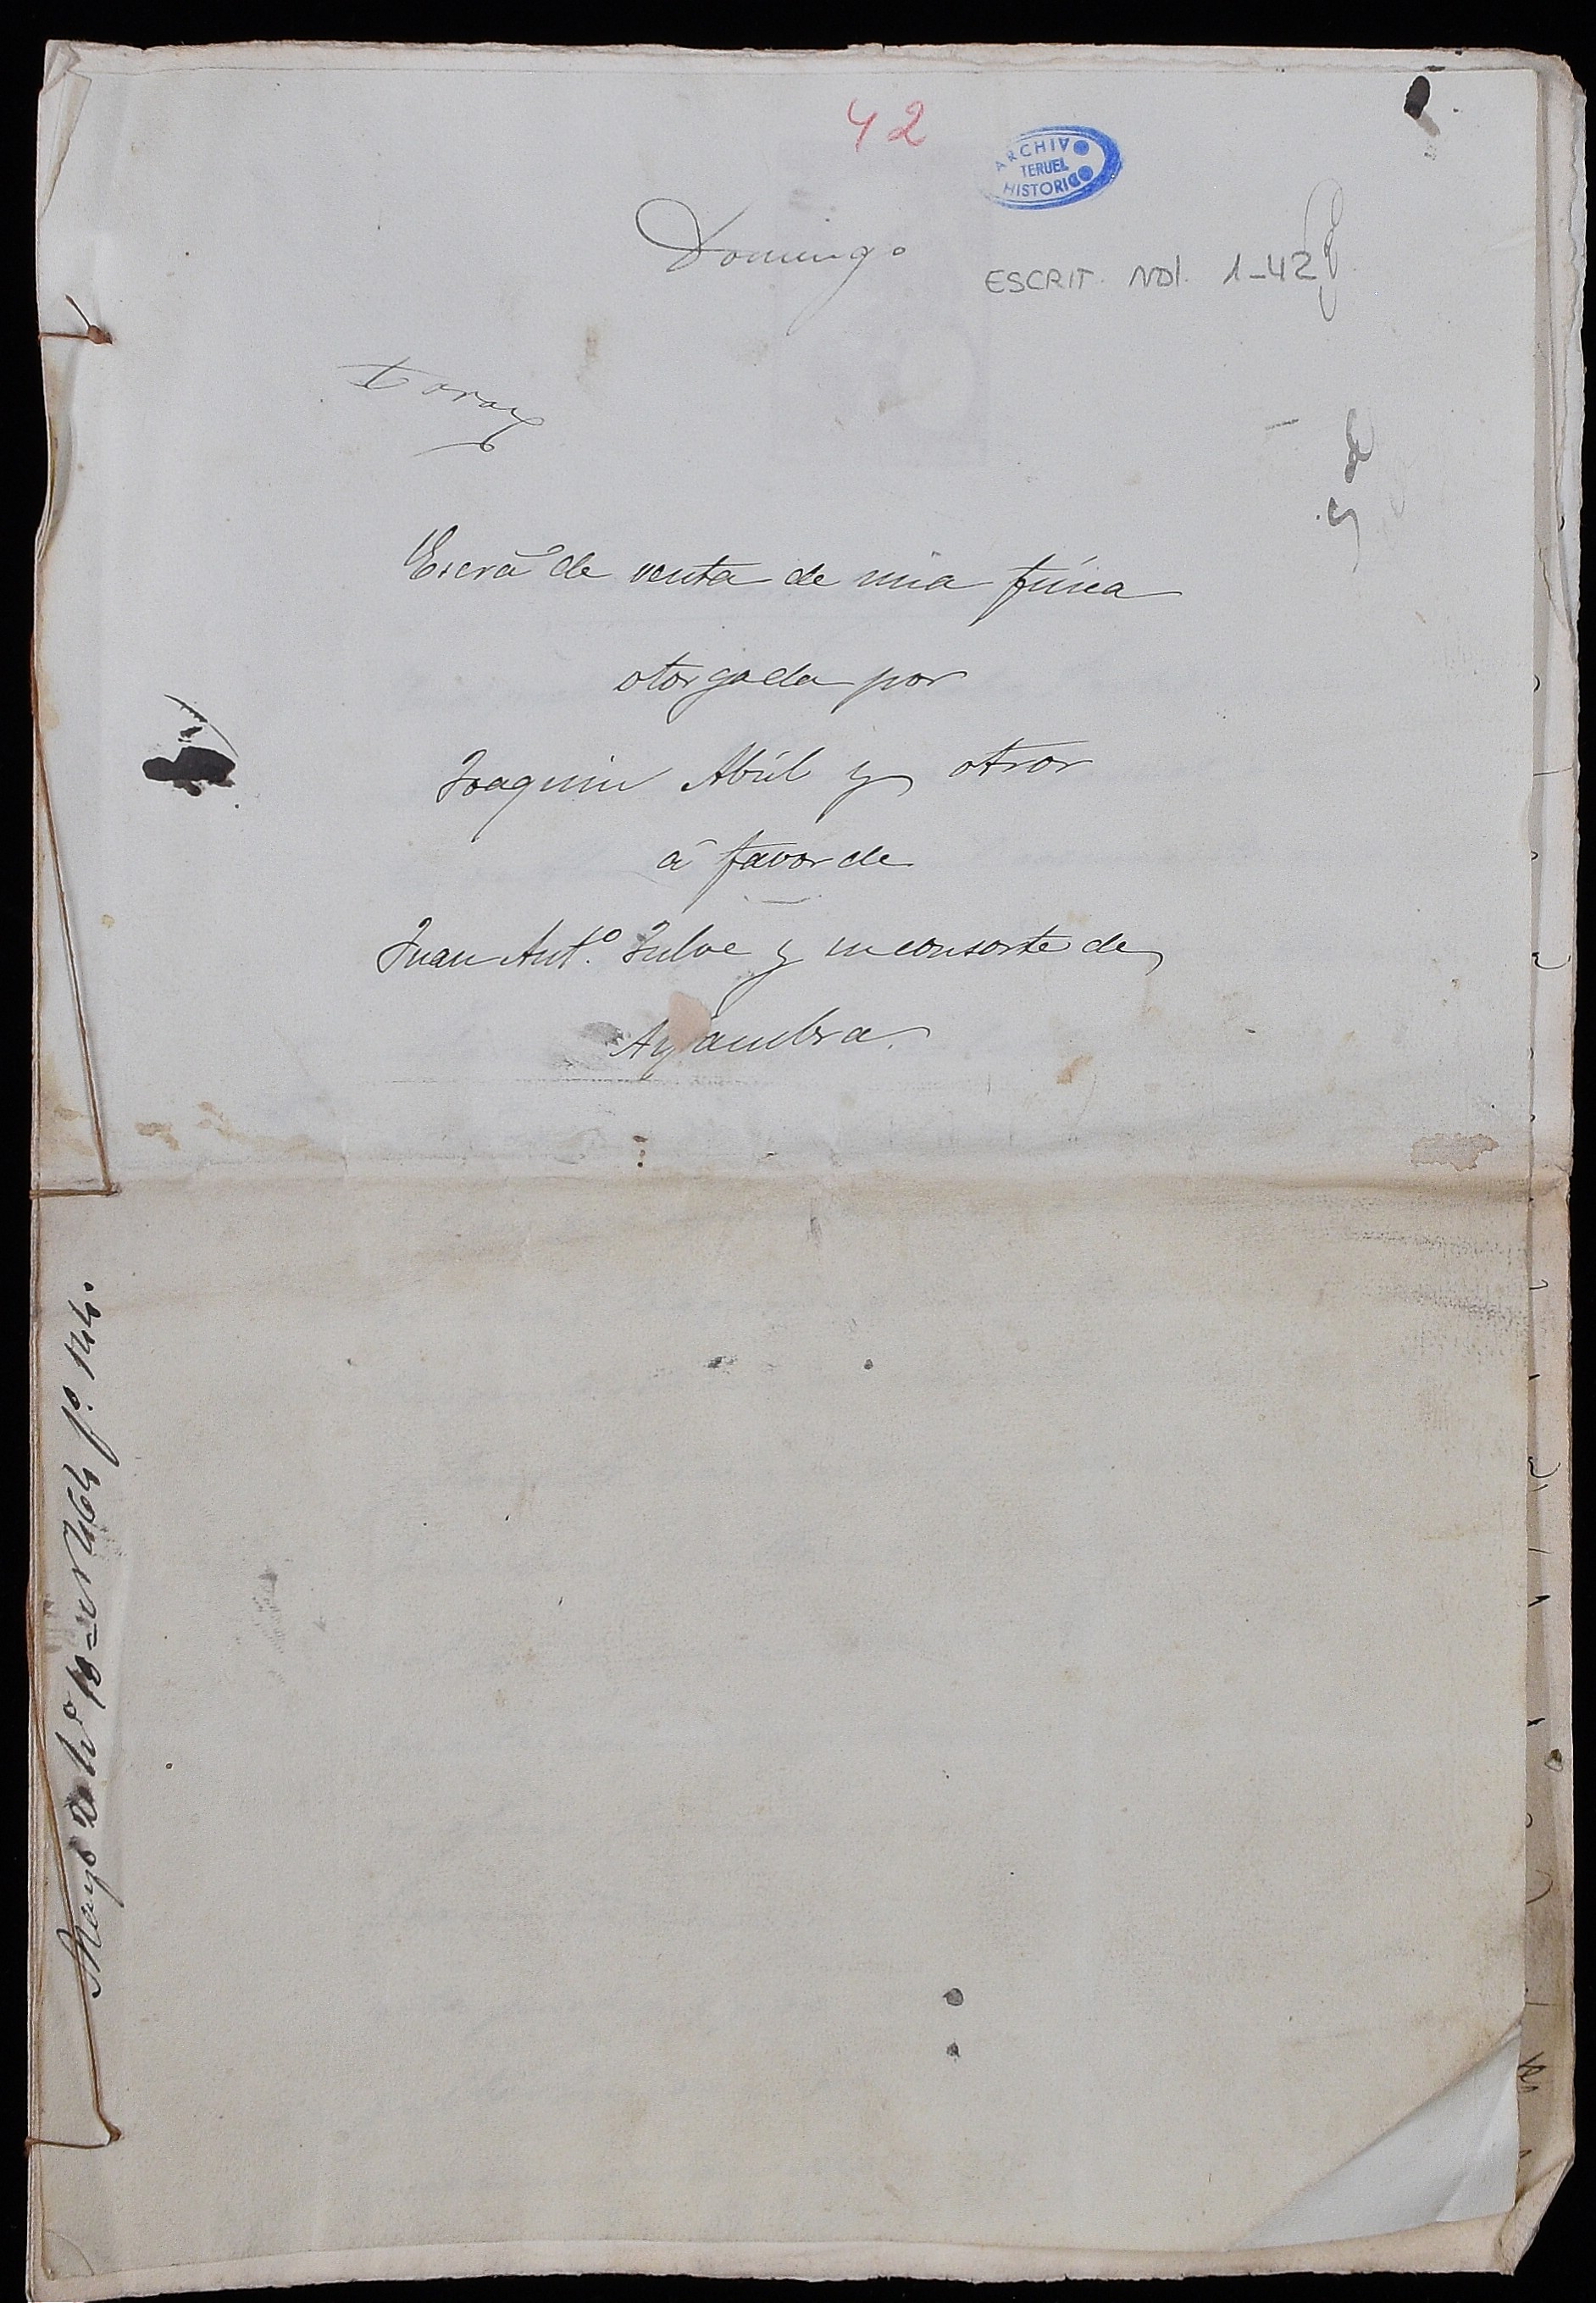 42
ARCHIVO
TERUEL
HISTORICO
Domingo
ESCRIT. NOT. 1-42
Escrã de venta de una finca
otorgada por
Joaquin Abril y otros
á favor de
Juan Antº. Julve y su consorte de
Alfambra.